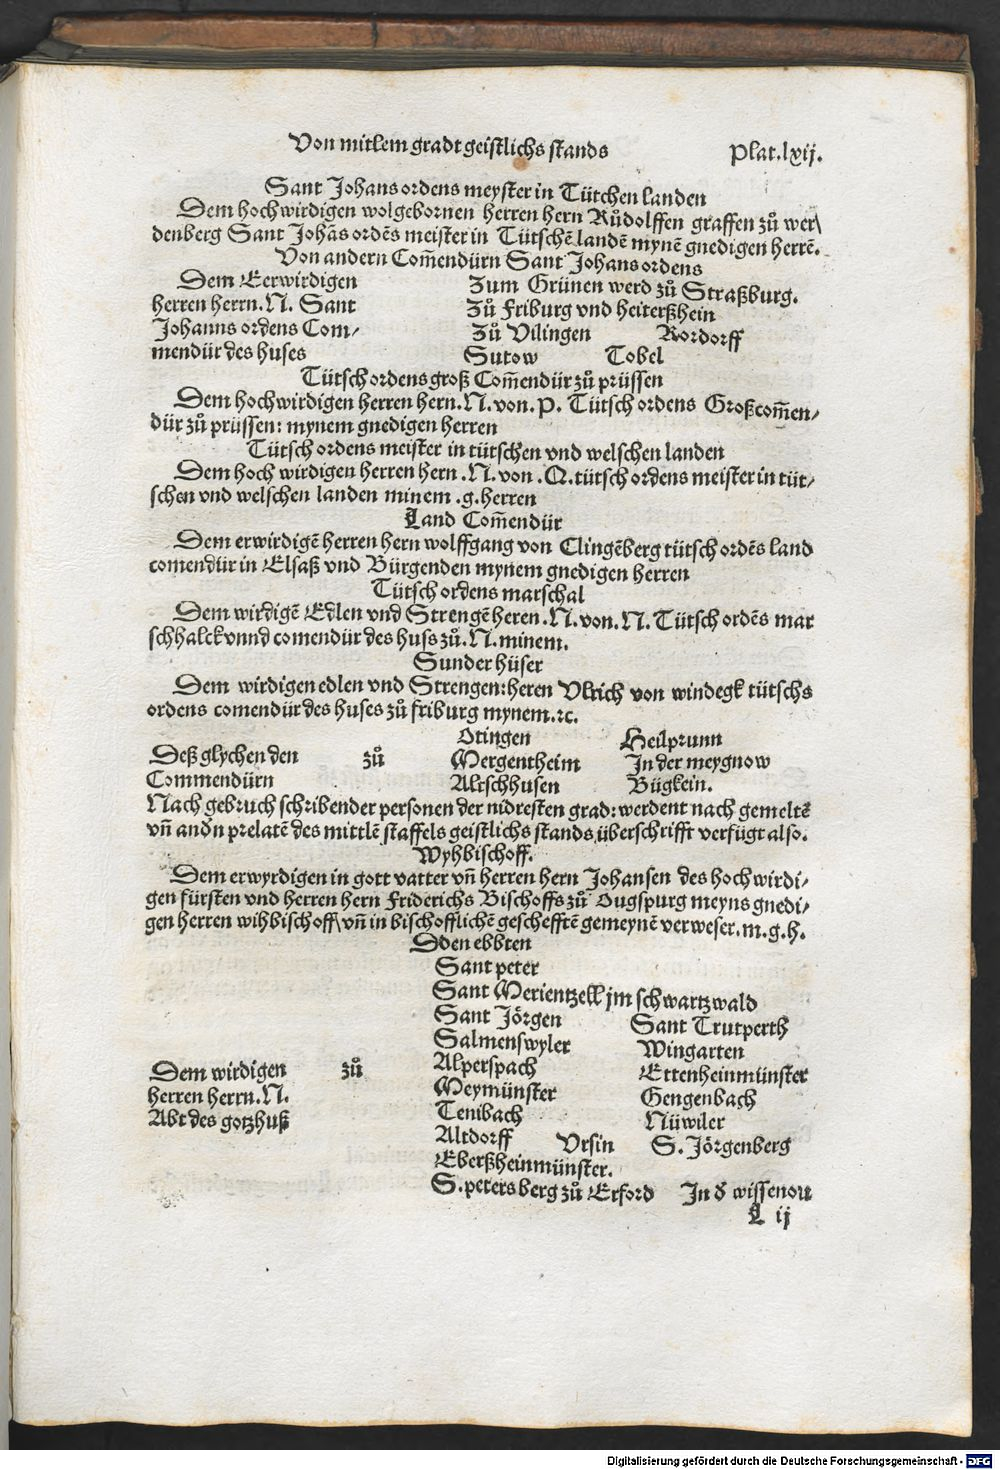 Von mitlem gradt geistlichs stands Plat.lxij.
Sant Johans ordens meyster in Tütchen landen
Dem hochwirdigen wolgebornen herren hern Růdolffen graffen zů wer\
denberg Sant Johãs ordẽs meister in Tütschẽ landẽ mynẽ gnedigen herrẽ.
Von andern Com̃endürn Sant Johans ordens
Dem Eerwirdigen zum Grünen werd zů Straßburg.
herren herrn. N. Sant zů Friburg vnd heiterßhein
Johanns ordens Com- zů Vilingen Rordorff
mendür des huses Sutow Tobel
Tütsch ordens groß Com̃endür zů prüssen
Dem hochwirdigen herren hern. N. von. P. Tütsch ordens Großcom̃en-
dür zů prüssen: mynem gnedigen herren
Tütsch ordens meister in tütschen vnd welschen landen
Dem hoch wirdigen herren hern .N. von .Q. tütsch ordens meister in tüt-
schen vnd welschen landen minem .g. herren
Land Com̃endür
Dem erwirdigẽ herren hern wolffgang von Clingẽberg tütsch ordẽs land
comendür in Elsaß vnd Bürgenden mynem gnedigen herren
Tütsch ordens marschal
Dem wirdigẽ Edlen vnd Strengẽ heren .N. von. N. Tütsch ordẽs mar
schhalck vnnd comendür des huss zů. N. minem.
Sunder hüser
Dem wirdigen edlen vnd Strengen: heren Vlrich von windegk tütschs
ordens comendür des huses zů friburg mynem.⁊c.
Otingen Heilprunn
Deß glychen den zů Mergentheim In der meygnow
Commendürn Altschhusen Bügkein.
Nach gebruch schribender personen der nidresten grad: werdent nach gemeltẽ
vñ andn prelatẽ des mittlẽ staffels geistlichs stands überschrifft verfügt also.
Wyhbischoff.
Dem erwyrdigen in gott vatter vñ herren hern Johansen des hochwirdi-
gen fürsten vnd herren hern Friderichs Bischoffs zů Ougspurg meyns gnedi-
gen herren wihbischoff\ vñ in bischofflichẽ geschefftẽ gemeynẽ verweser. m. g. h.
Den ebbten
Sant peter
Sant Merientzell jm schwartzwald
Sant Jörgen Sant Trutperth
Salmenswyler Wingarten
Dem wirdigen zů Alperspach Ettenheinmünster
herren herrn. N. Meymünster Gengenbach
Abt des gotzhuß Tenibach Nüwiler
Altdorff Vrsin S. Jörgenberg
Eberßheinmünster.
S. petersberg zů Erford In d wissenou
L ij
Digitalisierung gefördert durch die Deutsche Forschungsgemeinschaft - DFG